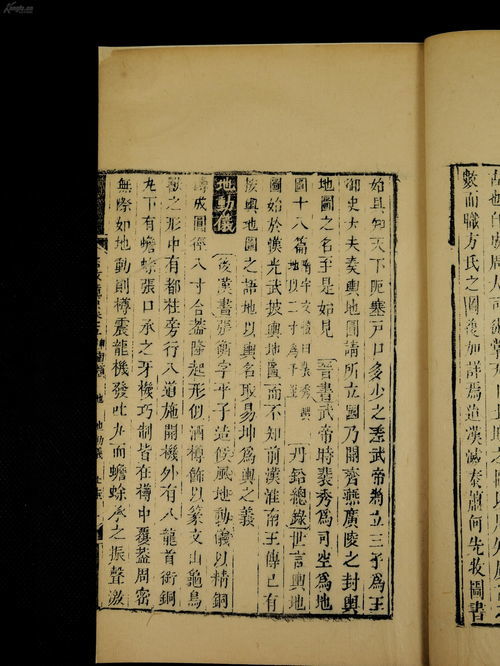 故也自成周大司徒掌天下
數而職方氏之圖復加詳焉迨漢滅秦蕭何先收圖書
始具知天下阨塞戶口多少之差武帝將立三子爲王
御史大夫奏輿地圖請所立國乃開齊燕廣陵之封輿
地圖之名至是始見 晉書武帝時裴秀爲司空爲地
圖十八篇
圖始於漢光武披輿地圖而不知前漢淮南王傳已有
按輿地圖之語地以輿名取易坤爲輿之義
丹鉛總錄世言輿地
地動儀 後漢書張衡字平子造候風地動儀以精銅
鑄成圓徑八寸合蓋隆起形似酒樽飾以篆文山龜鳥
獸之形中有都柱旁行八道施關機外有八龍首銜銅
丸下有蟾蜍張口承之牙機巧制皆在樽中覆蓋周密
無際如地動則樽震龍機發吐丸而蟾蜍承之振聲激
地 地動儀
Kongfz.cn